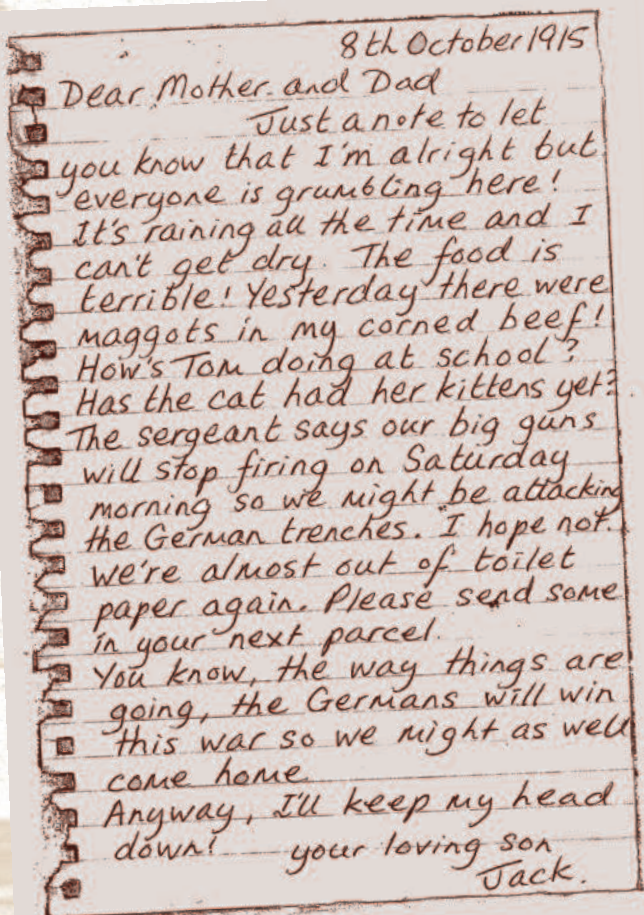 8th October 1915
Dear Mother and Dad
Just a note to let
you know that I'm alright but
everyone is grumbling here!
It's raining all the time and I
can't get dry. The food is
terrible! Yesterday there were
maggots in my corned beef!
How's Tom doing at school?
Has the cat had her kittens yet?
The sergeant says our big guns
will stop firing on Saturday
morning so we might be attacking
the German trenches. I hope not.
We're almost out of toilet
paper again. Please send some
in your next parcel.
You know, the way things are
going, the Germans will win
this war so we might as well
come home.
Anyway, I'll keep my head
down! your loving son
Jack.